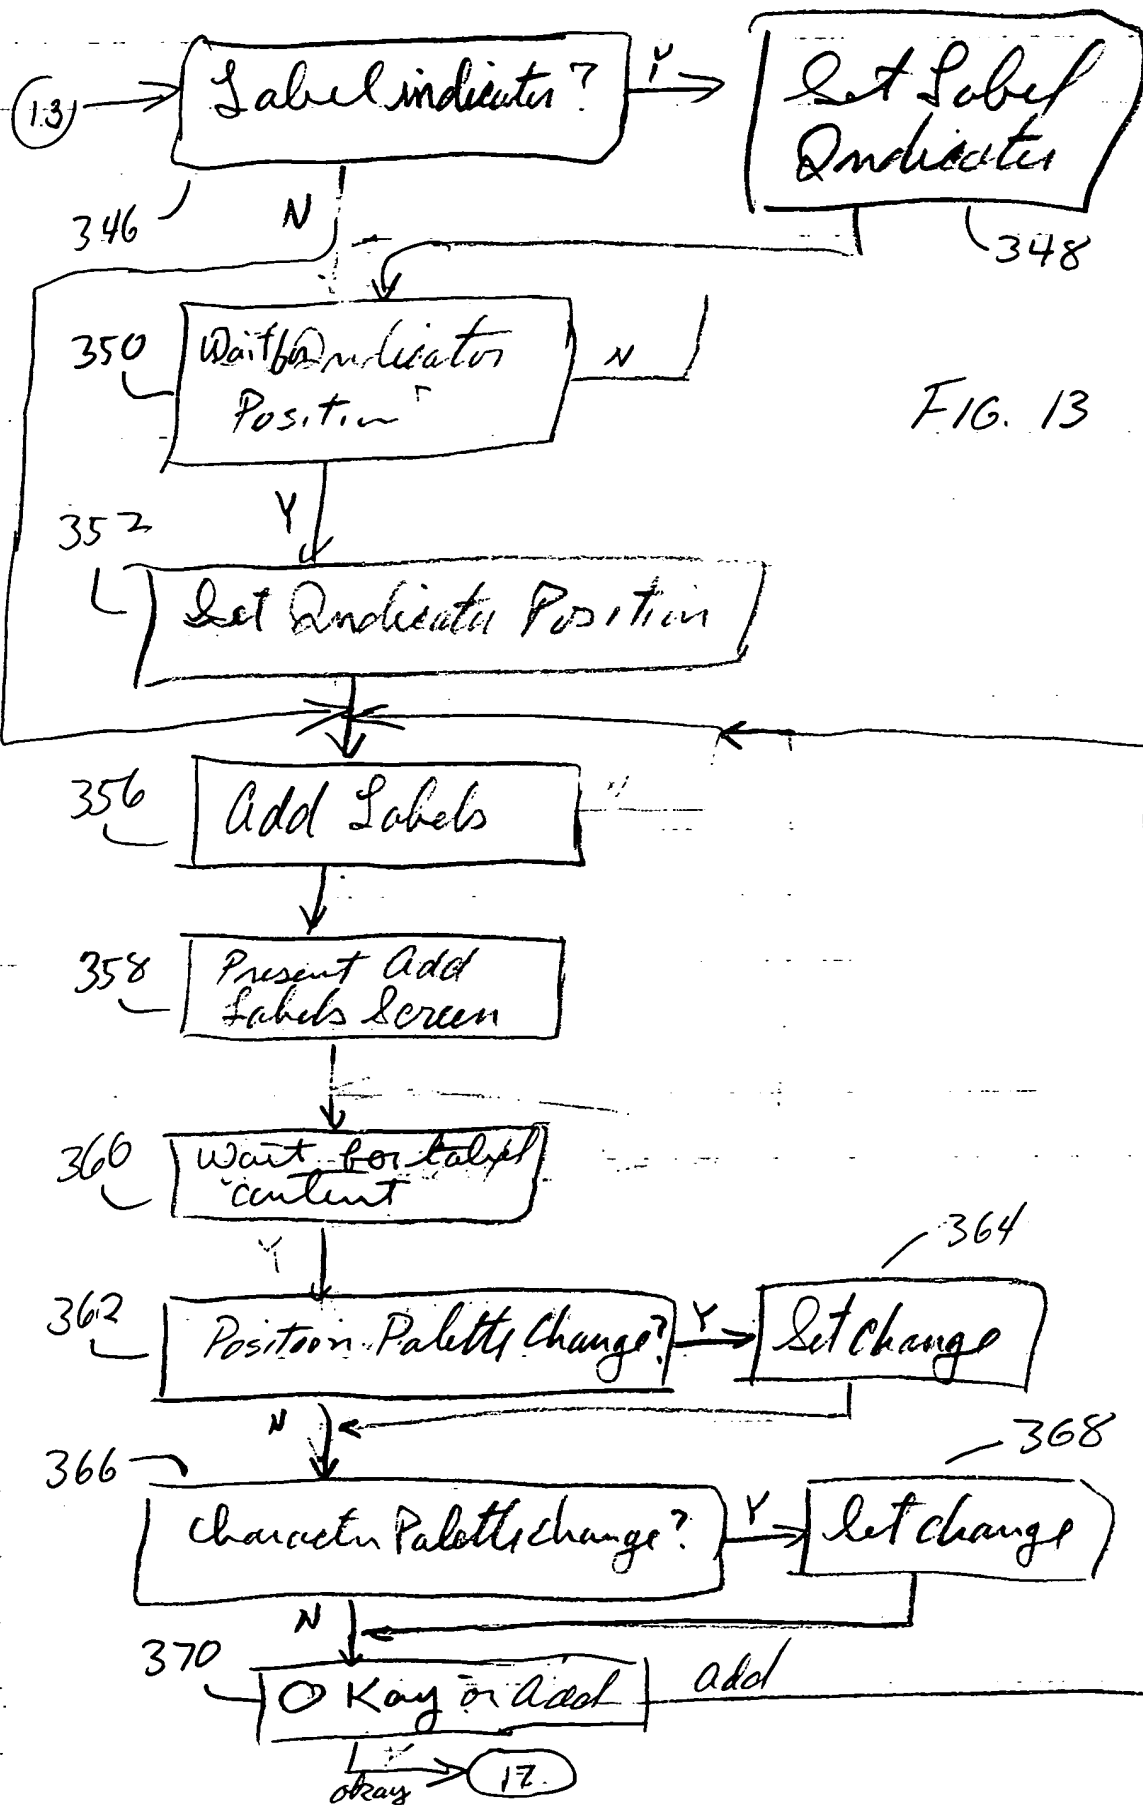 13
Label indicator?
Y
Set Label
Indicator
346
N
348
350
Wait for Indicator
Position
N
FIG. 13
Y
352
Set Indicator Position
356
Add Labels
N
358
Present Add
Labels Screen
360
Wait for label
content
Y
364
362
Position Palette Change?
Y
Set change
N
366
368
Character Palette change?
Y
Set change
N
370
O Kay or Add
Add
okay
17